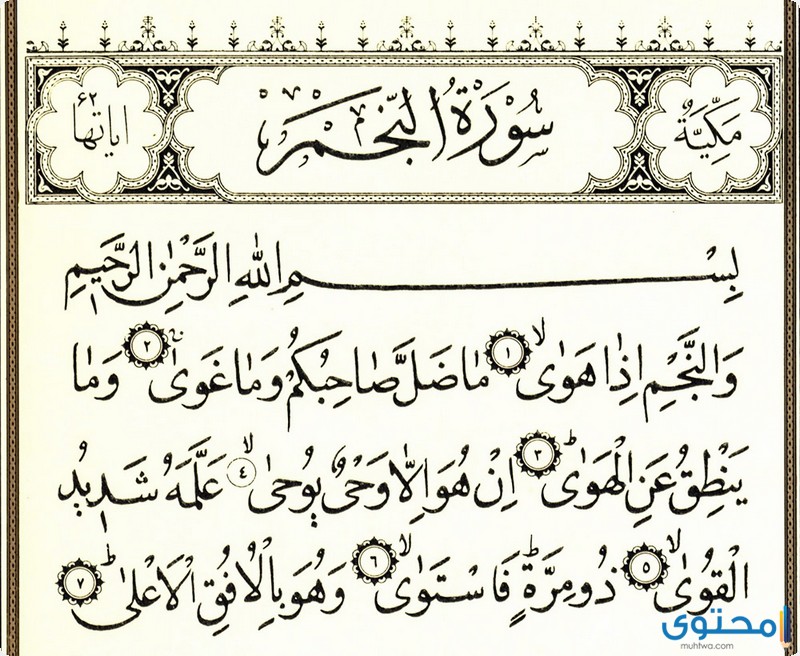 مَكِّيَّةٌ
سُوْرَةُ النَّجْمِ
اٰيَاتُهَا ٦٢
بِسْمِ اللّٰهِ الرَّحْمٰنِ الرَّحِيْمِ
وَالنَّجْمِ اِذَا هَوٰى ۙ﴿١﴾ مَا ضَلَّ صَاحِبُكُمْ وَمَا غَوٰى ۚ﴿٢﴾ وَمَا
يَنْطِقُ عَنِ الْهَوٰى ؕ﴿٣﴾ اِنْ هُوَ اِلَّا وَحْىٌ يُّوْحٰى ۙ﴿٤﴾ عَلَّمَهٗ شَدِيْدُ
الْقُوٰى ۙ﴿٥﴾ ذُوْ مِرَّةٍ ؕ فَاسْتَوٰى ۙ﴿٦﴾ وَهُوَ بِالْاُفُقِ الْاَعْلٰى ؕ﴿٧﴾
محتوى
muhtwa.com